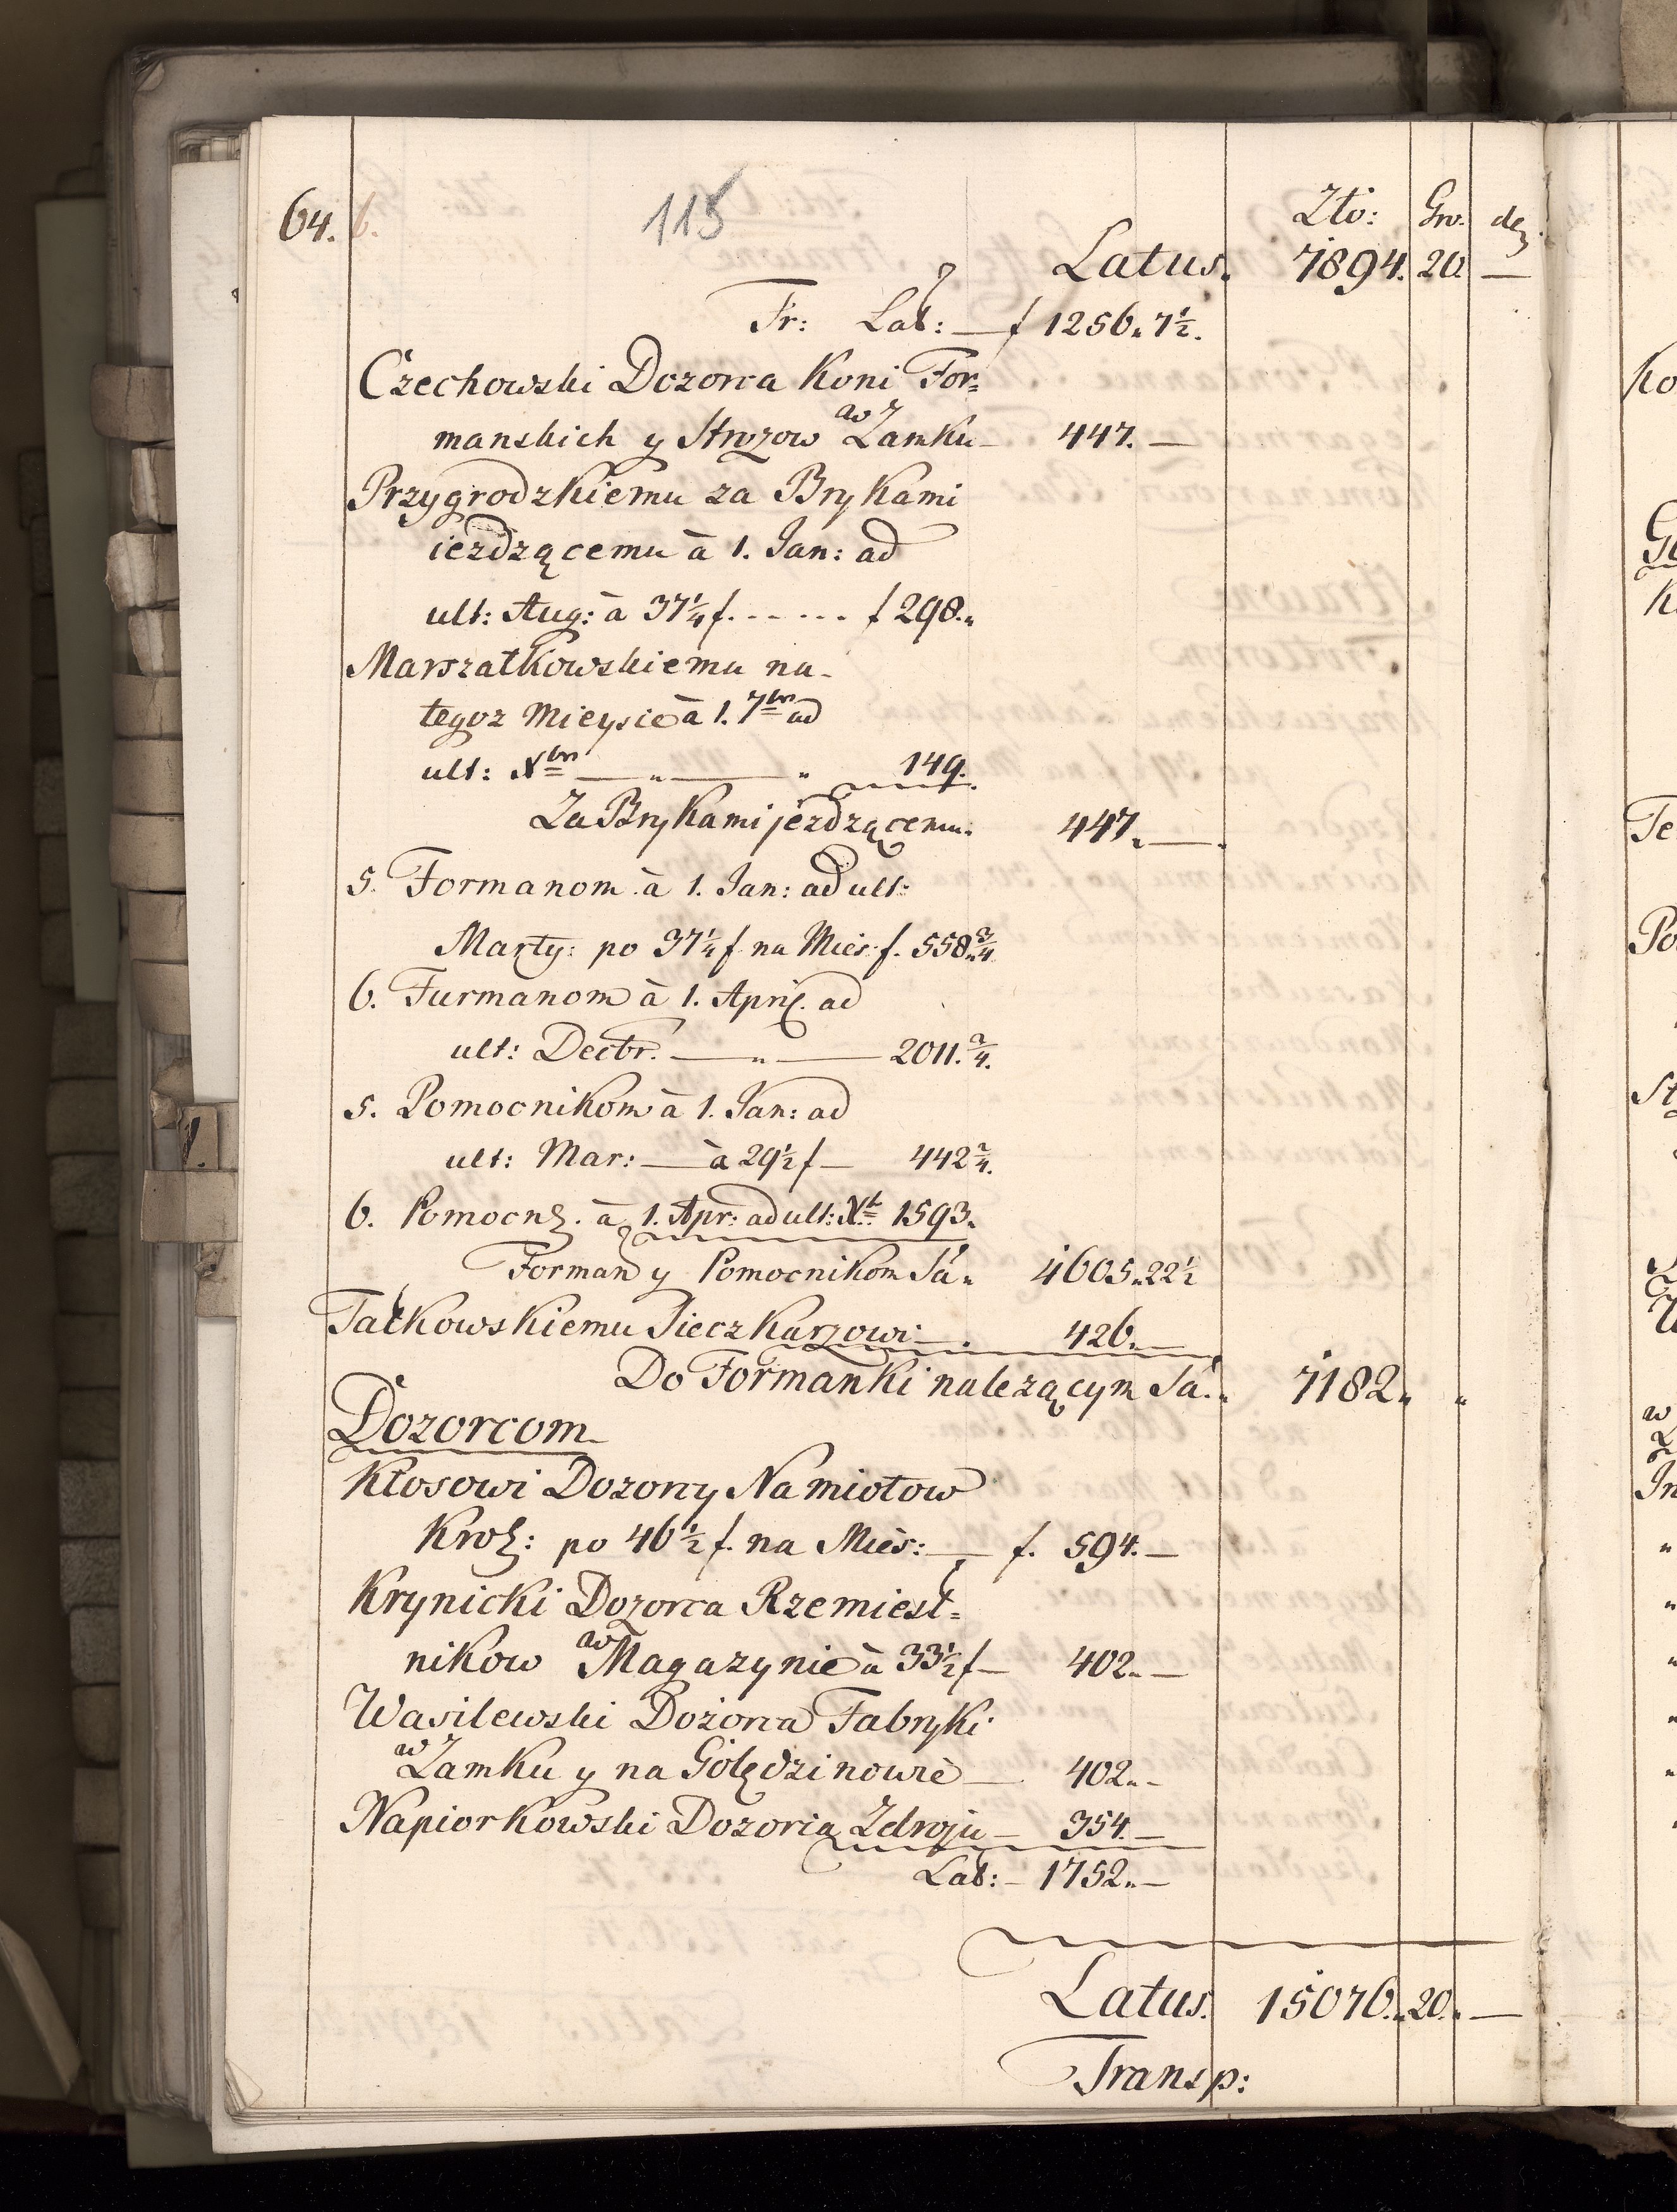 64. 6.
115
Zło: Gro. de:
Latus. 7894. 20. —
Tr: Lat: — f 1256. 7½.
Czechowski Dozorca Koni For=
manskich y Strozow w Zamku — 447. —
Przygrodzkiemu za Brykami
iezdzącemu à 1. Jan: ad
ult: Aug: à 37¼ f. - - - - - f 298. "
Marszałkowskiemu na
tegoz Mieysie à 1. 7br ad
ult: Xbr — " — " 149.
Za Brykami jezdzącemu. 447. —
5. Formanom à 1. Jan: ad ult:
Marty: po 37¼ f na Mies: f. 558. ¾
6. Furmanom à 1. April. ad
ult: Decbr. — " — 2011. 2/4.
5. Pomocnikom à 1. Jan: ad
ult: Mar: — à 29½ f — 442 2/4.
6. Pomocn. à 1. Apr: ad ult: Xb 1593.
Forman y Pomocnikom Sa " 4605. 22½
Tatkowskiemu Sieczkarzowi — 426. —
Do Formanki nalezącym Sa. " 7182. "
Dozorcom
Kłosowi Dozorcy Namiotow
Krol: po 46½ f. na Mies: — f. 594. —
Krynicki Dozorca Rzemiesł=
nikow w Magazynie à 33½ f — 402. —
Wasilewski Dozorca Fabryki
w Zamku y na Golędzinowie — 402. -
Napiorkowski Dozorca Zdroju — 354. —
Lat: — 1752. —
Latus. 15076. 20. —
Transp: